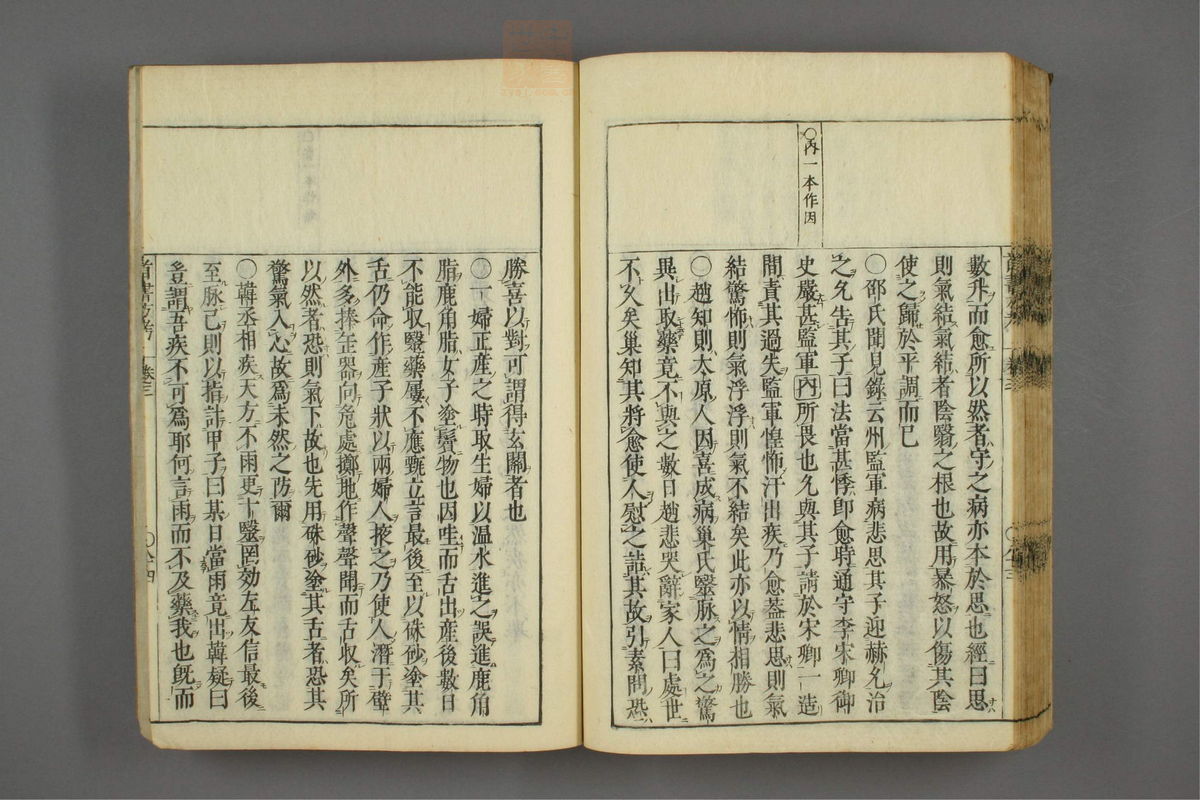 ○內一本作因
數升而愈所以然者守之病亦本於思也經曰思
則氣結氣結者陰翳之根也故用暴怒以傷其陰
使之歸於平調而已
○邵氏聞見錄云州監軍病悲思其子迎赫允治
之允告其子曰法當甚悸卽愈時通守李宋卿御
史嚴甚監軍內所畏也允與其子請於宋卿一造
間責其過失監軍惶怖汗出疾乃愈蓋悲思則氣
結驚怖則氣浮浮則氣不結矣此亦以情相勝也
○趙知則太原人因喜成病巢氏醫脉之爲之驚
異出取藥竟不與之數日趙悲哭辭家人曰處世
不久矣巢知其將愈使人慰之詰其故引素問恐
勝喜以對可謂得玄關者也
○一婦正產之時取生婦以溫水進之誤進鹿角
脂鹿角脂女子塗鬢物也因哇而舌出產後數日
不能收醫藥屢不應甄立言最後至以硃砂塗其
舌仍命作產子狀以兩婦人掖之乃使人潛于壁
外多捧缶器向危處擲地作聲聲聞而舌收矣所
以然者恐則氣下故也先用硃砂塗其舌者恐其
驚氣入心故爲未然之防爾
○韓丞相疾天方不雨更十醫罔効左友信最後
至脉已則以指計甲子曰某日當雨竟出韓疑曰
豈謂吾疾不可爲耶何言雨而不及藥我也旣而
卷三
○八十四